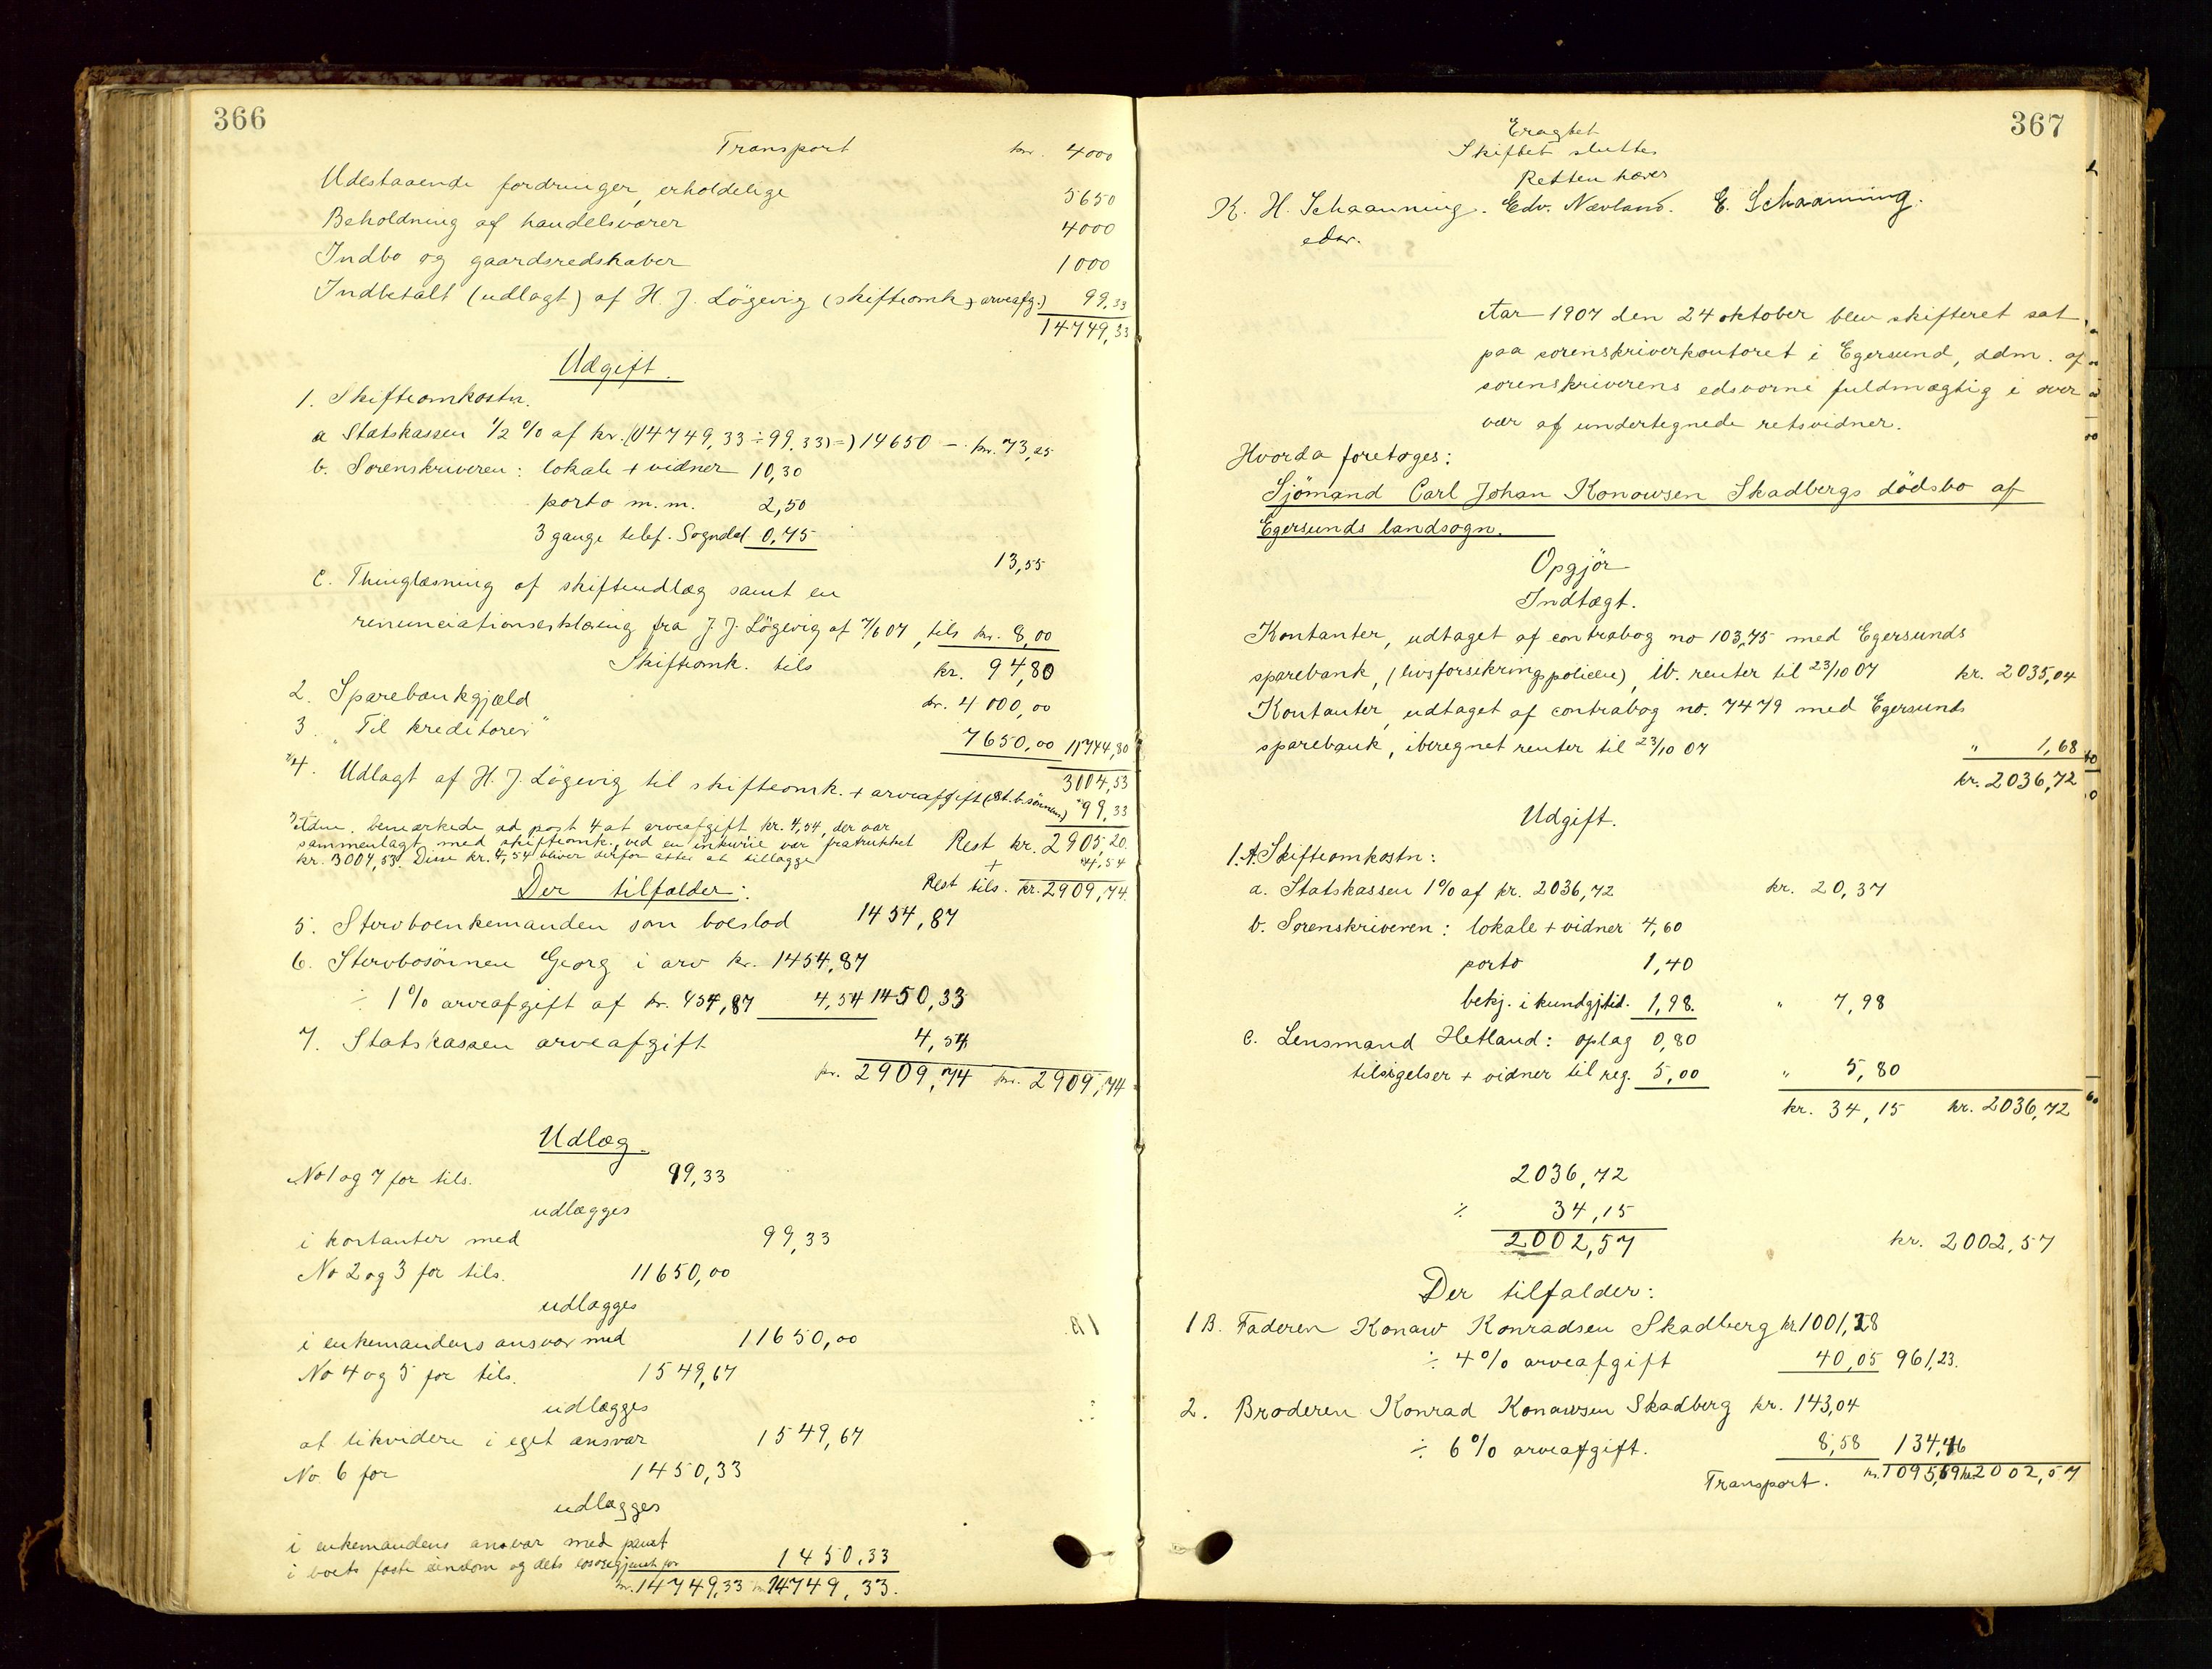 366
Transport kr. 4000
Udestaaende fordringer, erholdelige 5650
Beholdning af handelsvarer 4000
Indbo og gaardsredskaber 1000
Indbetalt (udlagt) af H. J. Lögevig (skifteomk. + arveafg.) 99,33
14749,33
Udgift.
1. Skifteomkostn.
a Statskassen 1/2 % af kr. (14749,33 ÷ 99,33) =) 14650 — kr. 73,25
b. Sorenskriveren: lokale + vidner 10,30
porto m.m. 2,50
3 gange telef. Sogndal 0,75
13,55
c. Thinglæsning af skifteudlæg samt en
renunciationserklæring fra J. J. Lögevig af 7/6 07, tils kr. 8,00
Skifteomk. tils kr. 94,80
2. Sparebankgjæld kr. 4000,00
3. "Til kreditorer" 7650,00 11744,80
3004,53
*4. Udlagt af H. J. Lögevig til skifteomk. + arveafgift (st.b.sönnen) " 99,33
*) Adm. bemærkede ad post 4 at arveafgift kr. 4,54, der var
sammenlagt med skifteomk., ved en inkurie var fratrukket Rest kr. 2905,20
kr. 3004,53. Disse kr. 4,54 bliver derfor atter at tillægge + 4,54
Der tilfalder: Rest tils. kr. 2909,74
5. Stervboenkemanden som boeslod 1454,87
6. Stervbosönnen Georg i arv kr. 1454,87
÷ 1% arveafgift af kr. 454,87 4,54 1450,33
7. Statskassen arveafgift 4,54
kr. 2909,74 kr. 2909,74
Udlæg.
No 1 og 7 for tils. 99,33
udlægges
i kontanter med 99,33
No 2 og 3 for tils. 11650,00
udlægges
i enkemandens ansvar med 11650,00
No 4 og 5 for tils. 1549,67
udlægges
at likvidere i eget ansvar 1549,67
No. 6 for 1450,33
udlægges
i enkemandens ansvar med pant
i boets faste eiendom og dets losöre 1450,33
kr. 14749,33 kr. 14749,33.
367
Eragtet
Skiftet sluttes
Retten hæves
K. H. Schaanning. Edv. Nævland. E. Schaanning.
edsv.
Aar 1907 den 24 oktober blev skifteret sat
paa sorenskriverkontoret i Egersund, adm. af
sorenskriverens edsvorne fuldmægtig i over
vær af undertegnede retsvidner.
Hvorda foretoges:
Sjömand Carl Johan Konowsen Skadbergs dödsbo af
Egersunds landsogn.
Opgjör
Indtægt.
Kontanter, udtaget af contrabog no 10375 med Egersunds
sparebank, (livsforsikringspolicen), ib. renter til 23/10 07 kr. 2035,04
Kontanter, udtaget af contrabog no. 7479 med Egersunds
sparebank, iberegnet renter til 23/10 07 " 1,68
kr. 2036,72
Udgift.
1. A. Skifteomkostn:
a. Statskassen 1% af kr. 2036,72 kr. 20,37
b. Sorenskriveren: lokale + vidner 4,60
porto 1,40
bekj. i kundgj.tid. 1,98. " 7,98
c. Lensmand Hetland: oplag 0,80
tilsigelser + vidner til reg. 5,00 " 5,80
kr. 34,15 kr. 2036,72
2036,72
÷ 34,15
2002,57 kr. 2002,57
Der tilfalder:
1 B. Faderen Konaw Konradsen Skadberg kr. 1001,28
÷ 4% arveafgift 40,05 961,23.
2. Broderen Konrad Konawsen Skadberg kr. 143,04
÷ 6% arveafgift. 8,58 134,46
Transport. kr. 1095,69 kr. 2002,57